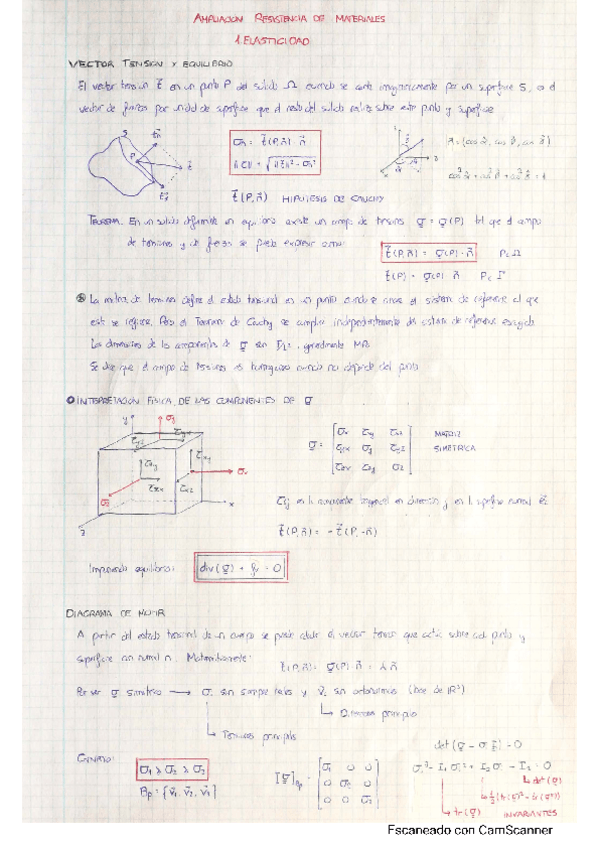 AMPLIACION RESISTENCIA DE MATERIALES
1. ELASTICIDAD
VECTOR TENSION Y EQUILIBRIO
El vector tension t en un punto P del solido Ω cuando se corta imaginariamente por un superficie S, es el
vector de fuerzas por unidad de superficie que el resto del solido realiza sobre este punto y superficie
S
P
t
t(P,n) HIPOTESIS DE CAUCHY
TEOREMA. En un solido deformable en equilibrio existe un campo de tensores σ = σ(P) tal que el campo
de tensiones y de fuerzas se puede expresar como:
t(P,n) = σ(P) · n P ∈ Ω
t(P) = σ(P) n P ∈ Γ
La matriz de tensiones define el estado tensional en un punto
este se refiere. Pero el Teorema de Cauchy se cumple independientemente del sistema de referencia escogido.
Las dimensiones de las componentes de σ son F/L², generalmente MPa
Se dice que el campo de tensiones es homogeneo cuando no depende del punto
INTERPRETACION FISICA DE LAS COMPONENTES DE σ
y
x
z
MATRIZ
SIMETRICA
en la componente tangencial en direccion y en la superficie normal
t(P,n) = -t(P,-n)
Imponiendo equilibrio: div(σ) + fv = 0
DIAGRAMA DE MOHR
A partir del estado tensional de un cuerpo se puede calcular el vector tension que actua sobre cada punto y
superficie con normal n. Matematicamente: t(P,n) = σ(P) n = λ n
Por ser σ simetrica → σi son siempre reales y vi son ortonormales (base de R³)
↳ Direcciones principales
↳ Tensiones principales
Criterio: σ1 ≥ σ2 ≥ σ3
Bp = {v1, v2, v3}
σ1 0 0
0 σ2 0
0 0 σ3
σi³ - I1 σi² + I2 σi - I3 = 0
↳ det(σ)
↳ tr(σ) INVARIANTES
Escaneado con CamScanner